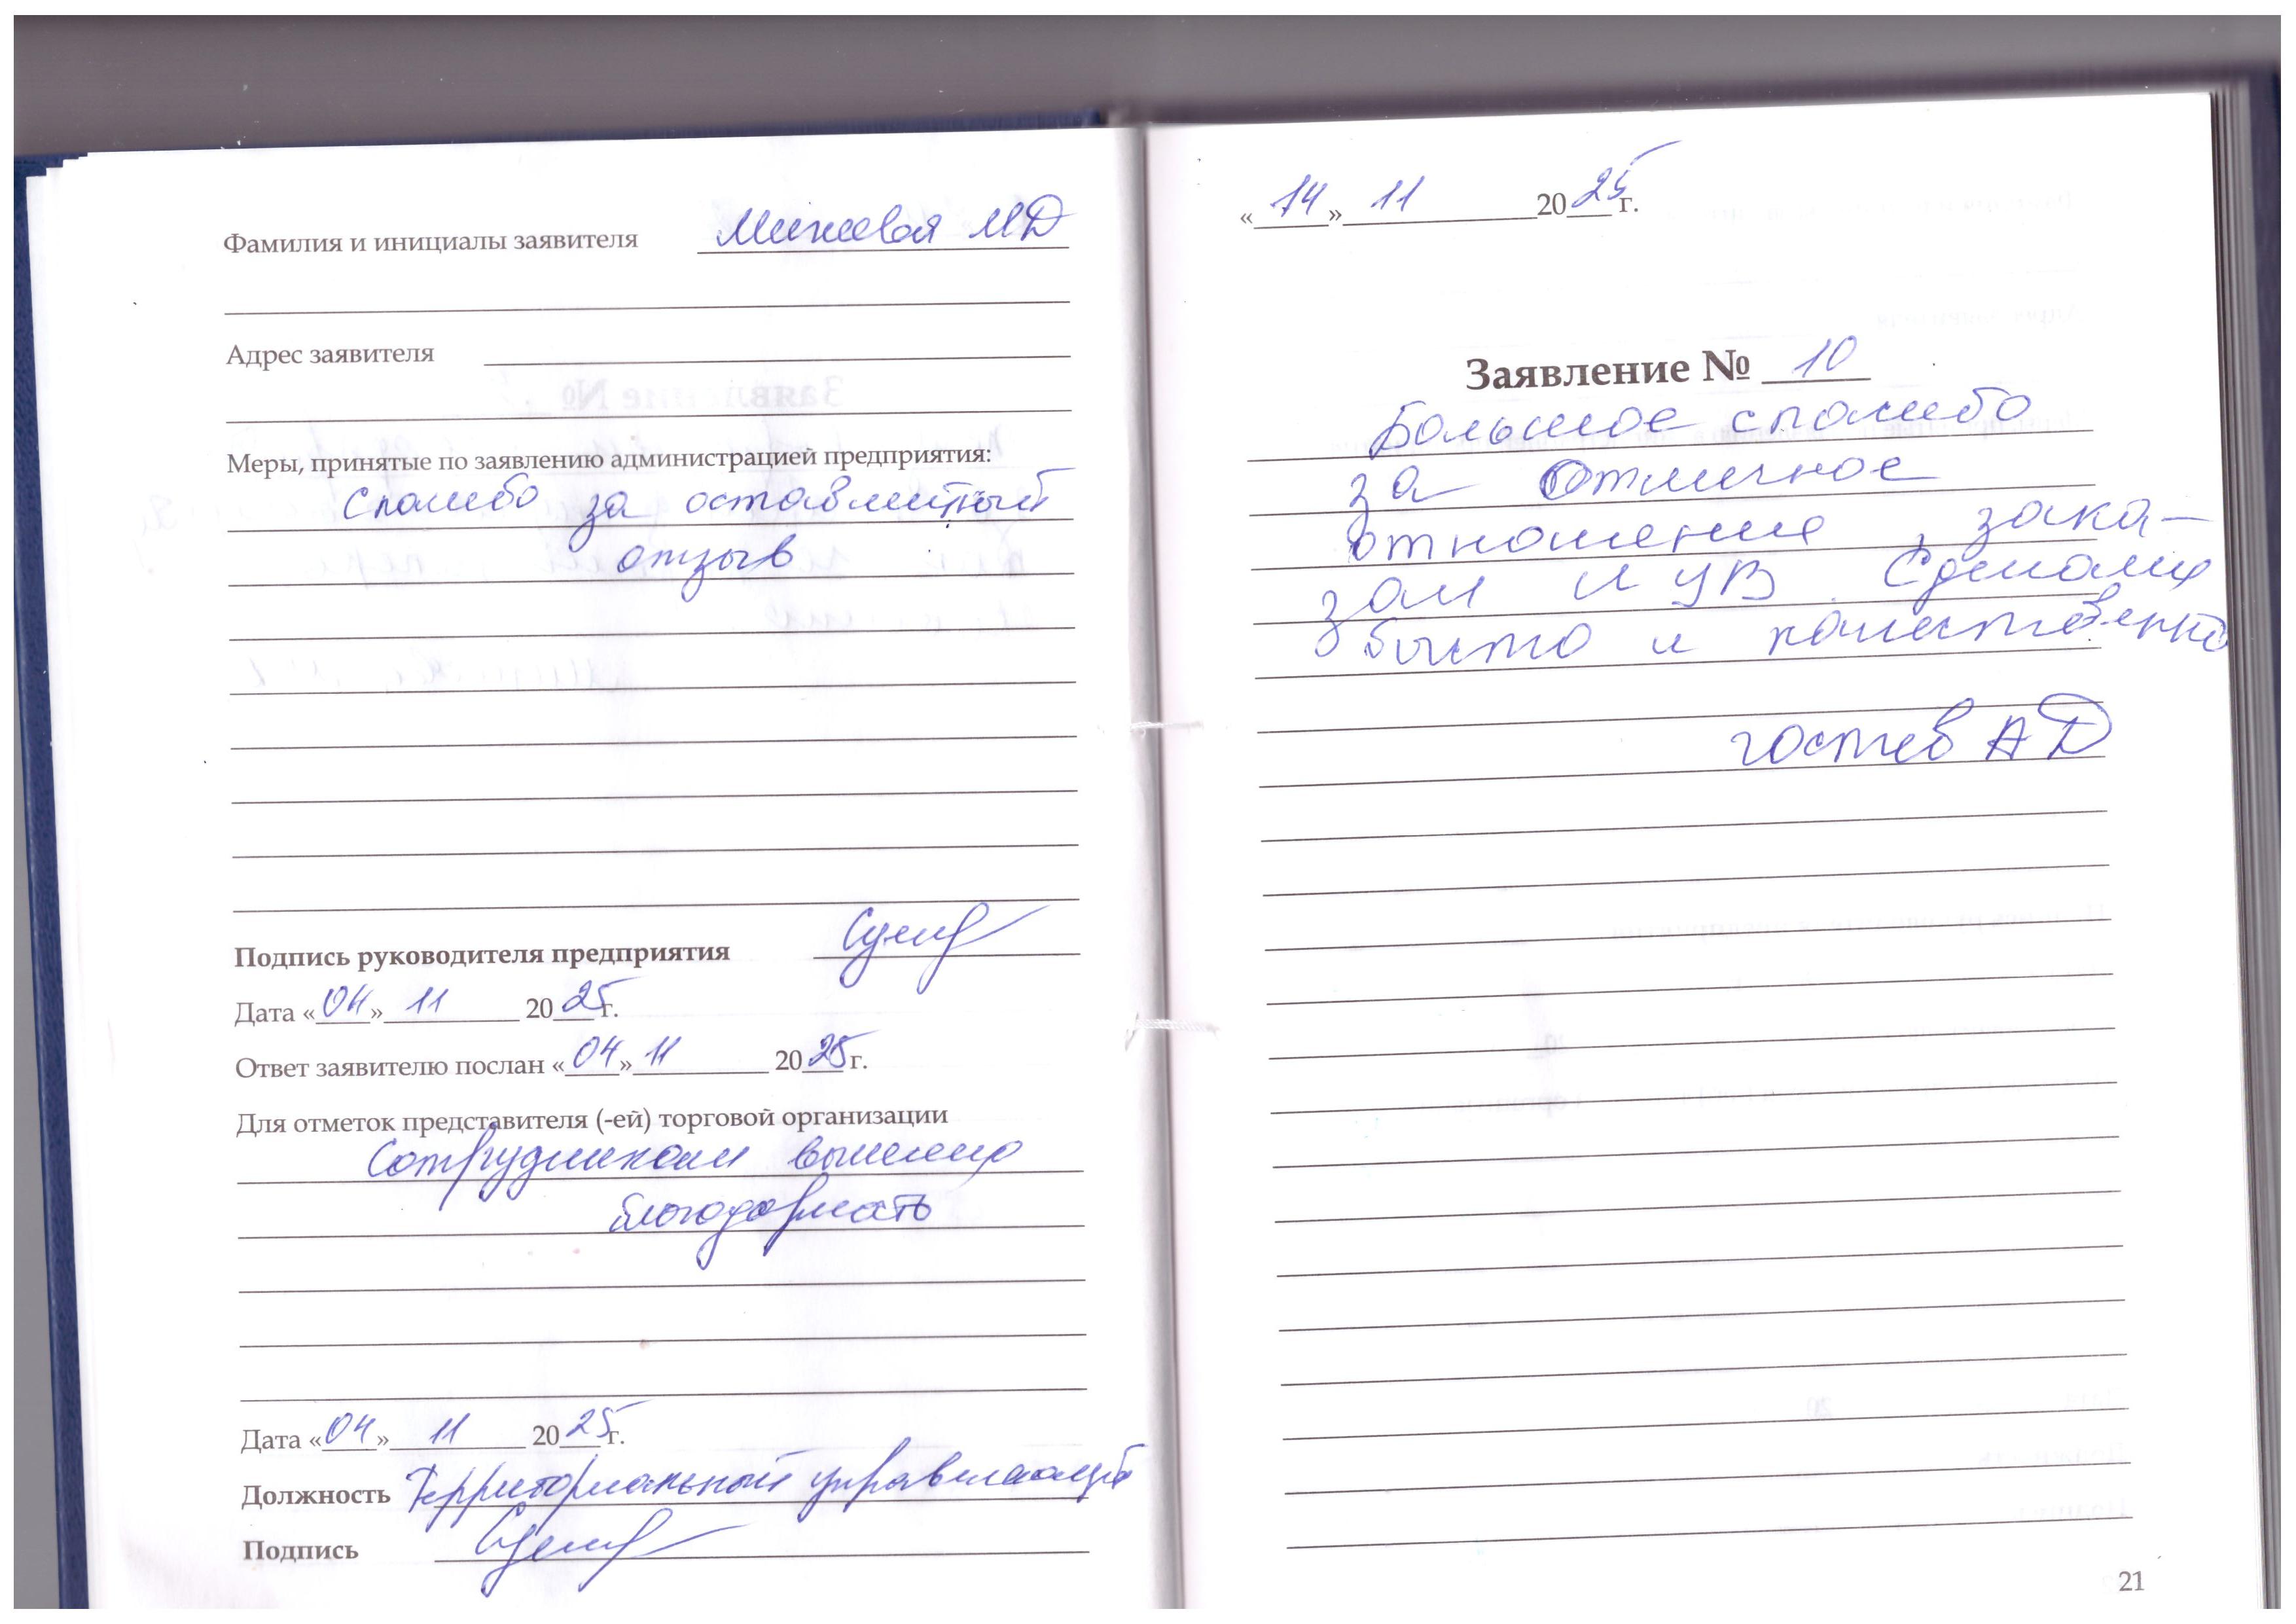 Фамилия и инициалы заявителя МД
Адрес заявителя
Меры, принятые по заявлению администрацией предприятия:
Спасибо за оставленный
отзыв
Подпись руководителя предприятия
Дата «04» 11 2025 г.
Ответ заявителю послан «04» 11 2025 г.
Для отметок представителя (-ей) торговой организации
Сотрудникам
благодарность
Дата «04» 11 2025 г.
Должность Территориальный управляющий
Подпись
«14» 11 2025 г.
Заявление № 10
Большое спасибо
за Отличное
отношение, зака-
зал УВ. Сделали
быстро и качественно
гостев АД
21